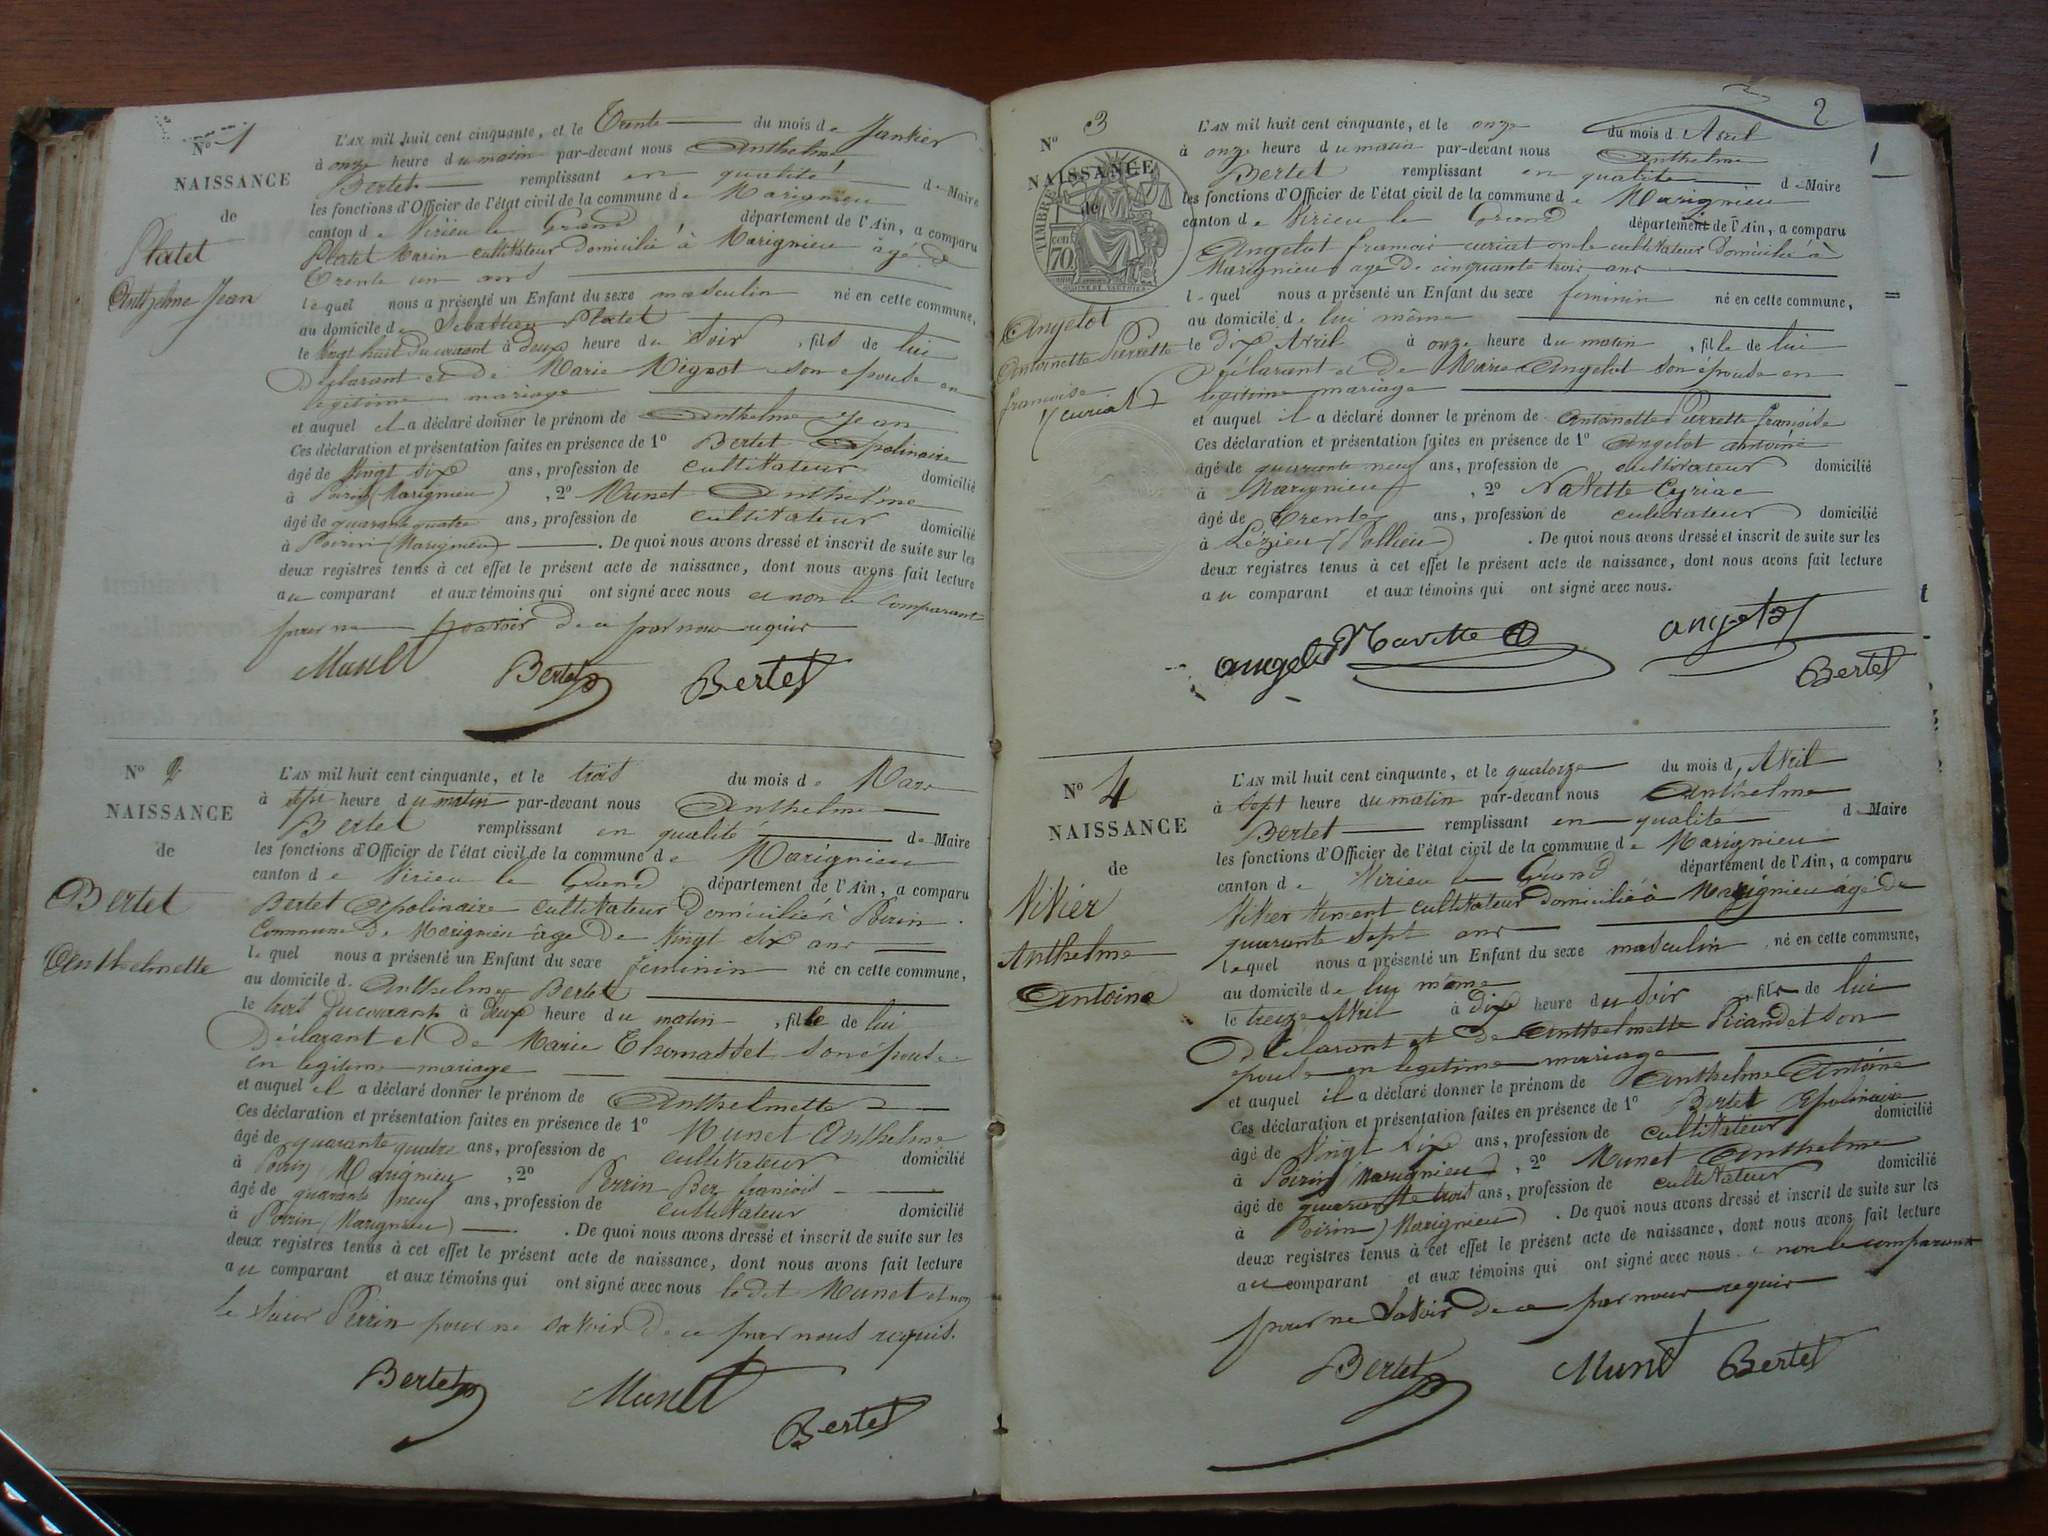 N° 1
NAISSANCE
de
Platet
Anthelme Jean
L'AN mil huit cent cinquante, et le Trente du mois de Janvier
à onze heure du matin par-devant nous Anthelme
Bertet remplissant en qualité de Maire
les fonctions d'Officier de l'état civil de la commune de Marignieu
canton de Virieu le Grand département de l'Ain, a comparu
Platet Marin cultivateur Domicilié à Marignieu âgé de
Trente un ans
lequel nous a présenté un Enfant du sexe masculin né en cette commune,
au domicile de Sebastien Platet
le vingt huit du courant à deux heure du soir, fils de lui
Déclarant et de Marie Mignot son épouse en
legitime mariage
et auquel il a déclaré donner le prénom de Anthelme Jean
Ces déclaration et présentation faites en présence de 1° Bertet Apolinaire
âgé de vingt six ans, profession de cultivateur domicilié
à Poirin (Marignieu), 2° Munet Anthelme
âgé de quarante quatre ans, profession de cultivateur domicilié
à Poirin (Marignieu). De quoi nous avons dressé et inscrit de suite sur les
deux registres tenus à cet effet le présent acte de naissance, dont nous avons fait lecture
au comparant et aux témoins qui ont signé avec nous et non le comparant
pour ne savoir de ce par nous requis
Munet Bertet Bertet
N° 2
NAISSANCE
de
Bertet
Anthelmette
L'AN mil huit cent cinquante, et le trois du mois de Mars
à sept heure du matin par-devant nous Anthelme
Bertet remplissant en qualité de Maire
les fonctions d'Officier de l'état civil de la commune de Marignieu
canton de Virieu le Grand département de l'Ain, a comparu
Bertet Apolinaire cultivateur Domicilié à Poirin
Commune de Marignieu âgé de vingt six ans
lequel nous a présenté un Enfant du sexe feminin né en cette commune,
au domicile d. Anthelme Bertet
le trois du courant à deux heure du matin, fille de lui
Déclarant et De Marie Thomasset son épouse
en legitime mariage
et auquel il a déclaré donner le prénom de Anthelmette
Ces déclaration et présentation faites en présence de 1° Munet Anthelme
âgé de quarante quatre ans, profession de cultivateur domicilié
à Poirin Marignieu, 2° Perrin Ber françois
âgé de quarante neuf ans, profession de cultivateur domicilié
à Poirin (Marignieu). De quoi nous avons dressé et inscrit de suite sur les
deux registres tenus à cet effet le présent acte de naissance, dont nous avons fait lecture
au comparant et aux témoins qui ont signé avec nous ledit Munet et non
le sieur Perrin pour ne savoir de ce par nous requis.
Bertet Munet Bertet
2
N° 3
NAISSANCE
de
TIMBRE
70
Angelot
Antoinette Pierrette
françoise
(curiat)
L'AN mil huit cent cinquante, et le onze du mois d Avril
à onze heure du matin par-devant nous Anthelme
Bertet remplissant en qualité de Maire
les fonctions d'Officier de l'état civil de la commune de Marignieu
canton de Virieu le Grand département de l'Ain, a comparu
Angelot françois curiat oncle cultivateur Domicilié à
Marignieu age de cinquante trois ans
lequel nous a présenté un Enfant du sexe feminin né en cette commune,
au domicile de lui même
le dix Avril à onze heure du matin, fille de lui
Déclarant et de Marie Angelot son épouse en
legitime mariage
et auquel il a déclaré donner le prénom de Antoinette Pierrette françoise
Ces déclaration et présentation faites en présence de 1° Angelot antoine
âgé de quarante neuf ans, profession de cultivateur domicilié
à Marignieu, 2° Navette Cyriac
âgé de Trente ans, profession de cultivateur domicilié
à Lézieu (Pollieu). De quoi nous avons dressé et inscrit de suite sur les
deux registres tenus à cet effet le présent acte de naissance, dont nous avons fait lecture
au comparant et aux témoins qui ont signé avec nous.
angelot Navette angelot
Bertet
N° 4
NAISSANCE
de
Vivier
Anthelme
Antoine
L'AN mil huit cent cinquante, et le quatorze du mois d Avril
à sept heure du matin par-devant nous Anthelme
Bertet remplissant en qualité de Maire
les fonctions d'Officier de l'état civil de la commune de Marignieu
canton de Virieu le Grand département de l'Ain, a comparu
Vivier Vincent cultivateur domicilié à Marignieu âgé de
quarante sept ans
lequel nous a présenté un Enfant du sexe masculin né en cette commune,
au domicile de lui même
le treize Avril à dix heure du soir, fils de lui
Déclarant et de Anthelmette Picandet son
epouse en legitime mariage
et auquel il a déclaré donner le prénom de Anthelme Antoine
Ces déclaration et présentation faites en présence de 1° Bertet Apolinaire
âgé de vingt six ans, profession de cultivateur domicilié
à Poirin (Marignieu), 2° Munet Anthelme
âgé de quarante trois ans, profession de cultivateur domicilié
à Poirin (Marignieu). De quoi nous avons dressé et inscrit de suite sur les
deux registres tenus à cet effet le présent acte de naissance, dont nous avons fait lecture
au comparant et aux témoins qui ont signé avec nous e non le comparant
pour ne Savoir de ce par nous requis
Bertet Munet Bertet